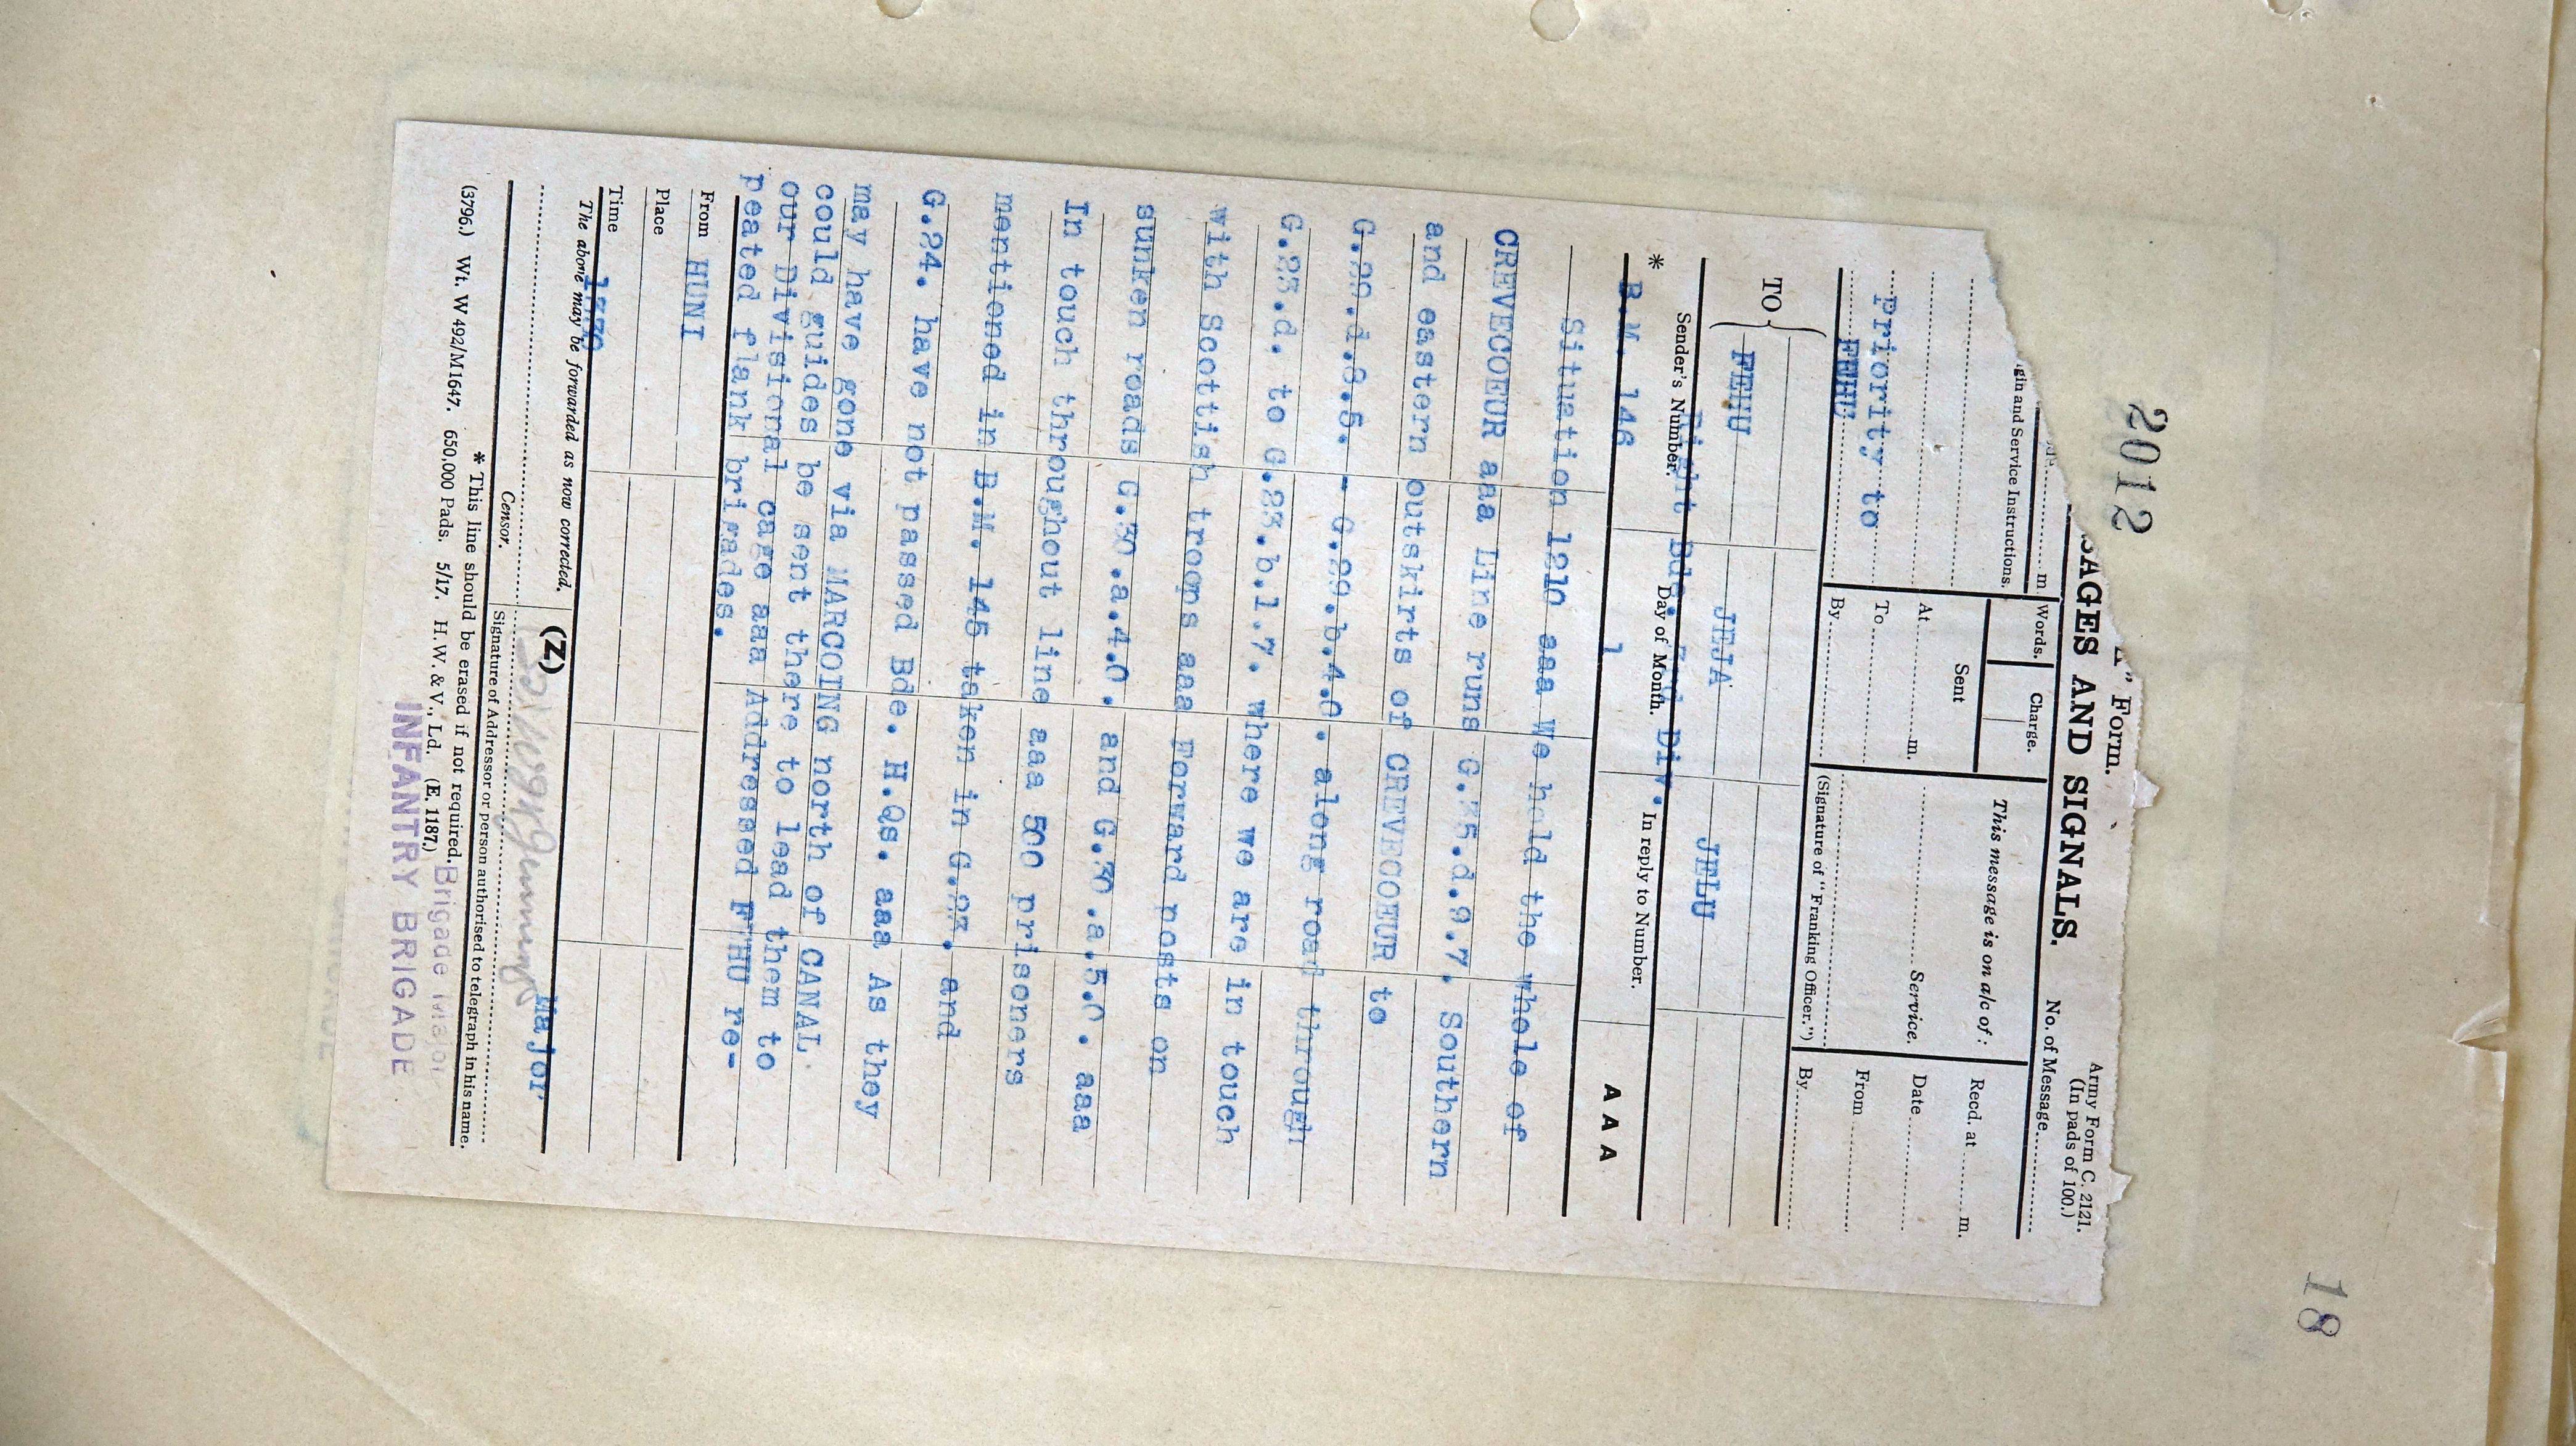 2012
18
" Form.
SAGES AND SIGNALS.
Army Form C. 2121.
(In pads of 100.)
No. of Message
m.
Words.
Charge.
gin and Service Instructions.
Sent
At m.
To
By
This message is on a/c of :
Service.
(Signature of "Franking Officer.")
Recd. at m.
Date
From
By
Priority to
FEHU
TO
FEHU JEJA JELU
Right Bde. Div.
* Sender's Number. Day of Month. In reply to Number. A A A
B.M. 146 1
Situation 1210 aaa We hold the whole of
CREVECOEUR aaa Line runs G.35.d.9.7. Southern
and eastern outskirts of CREVECOEUR to
G.29.d.8.5. - G.29.b.4.0. along road through
G.23.d. to G.23.b.1.7. where we are in touch
with Scottish troops aaa Forward posts on
sunken roads G.30.a.4.0. and G.30.a.5.0. aaa
In touch throughout line aaa 500 prisoners
mentioned in B.M. 145 taken in G.23, and
G.24. have not passed Bde. H.Qs. aaa As they
may have gone via MARCOING north of CANAL
could guides be sent there to lead them to
our Divisional cage aaa Addressed FEHU re-
peated flank brigades.
From HUNI
Place
Time
The above may be forwarded as now corrected.
(Z)
Major
Censor.
Signature of Addressor or person authorised to telegraph in his name.
* This line should be erased if not required.
(3796.) Wt. W 492/M1647. 650,000 Pads. 5/17. H.W. & V., Ld. (E. 1187.)
Brigade Major
INFANTRY BRIGADE